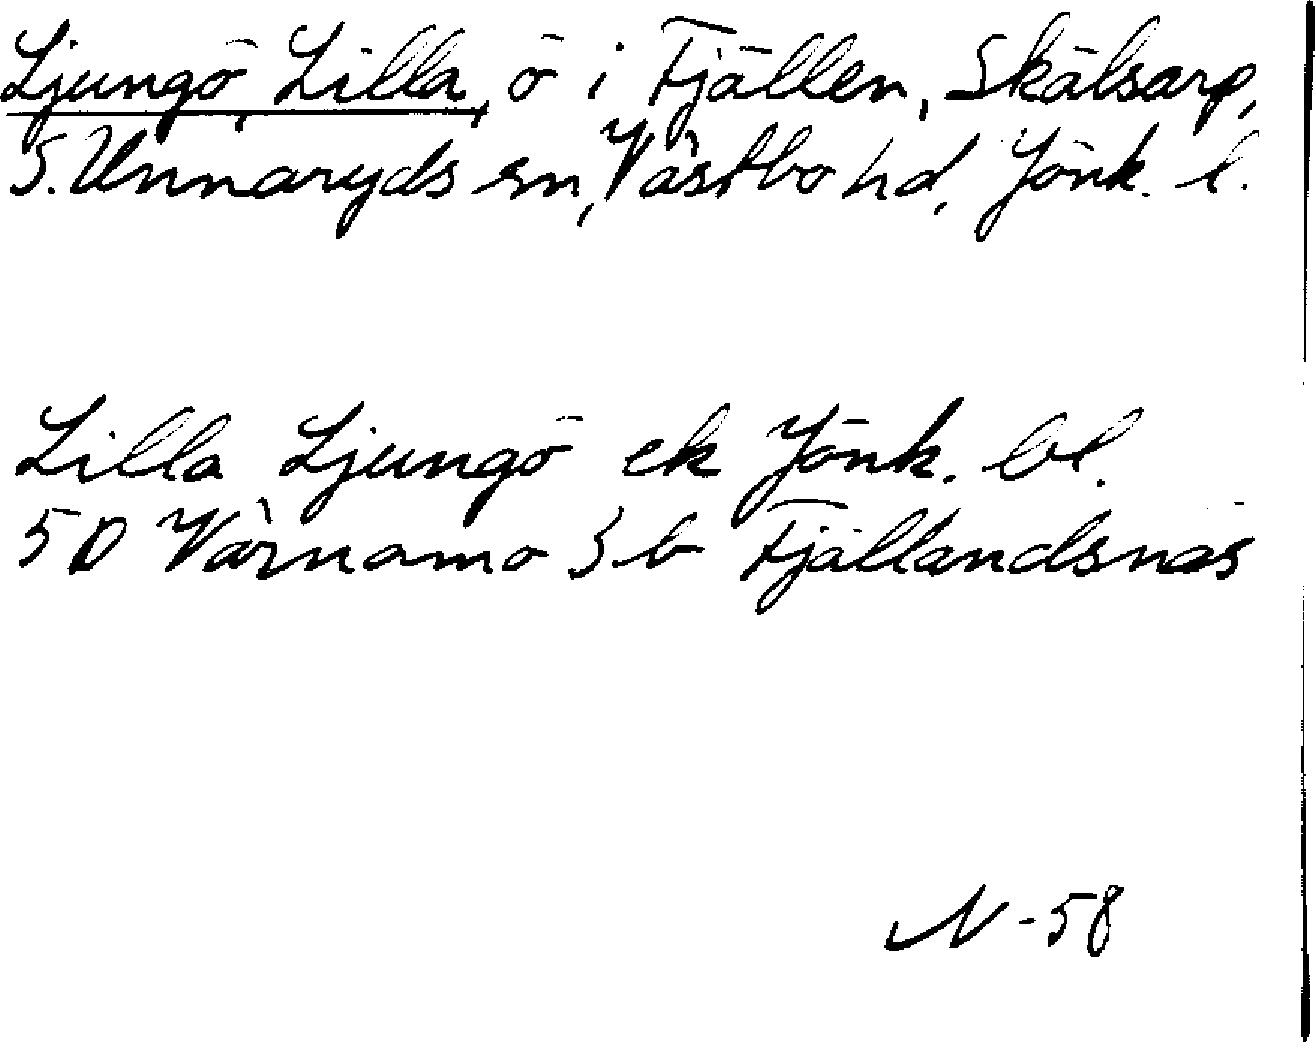 Ljungö, Lilla, ö i Fjällen, Skälsarp,
S. Unnaryds sn, Västbo hd, Jönk. l.
Lilla Ljungö ek Jönk. bl.
5D Värnamo Sb Fjällandsnäs
N-58